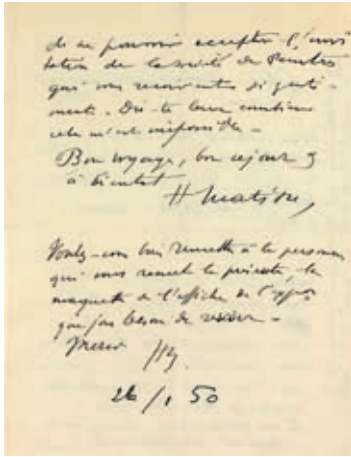 de ne pouvoir accepter l'invi
tation de la société de Peintres
qui vous recevront si genti-
ment. Dis-le leur combien
cela m'est impossible -
Bon voyage, bon séjour &
à bientôt
H Matisse,
Voulez-vous bien remettre à la personne
qui vous remet la présente, la
maquette de l'affiche de l'expo
que j'ai besoin de revoir -
Merci HM.
26/1 50